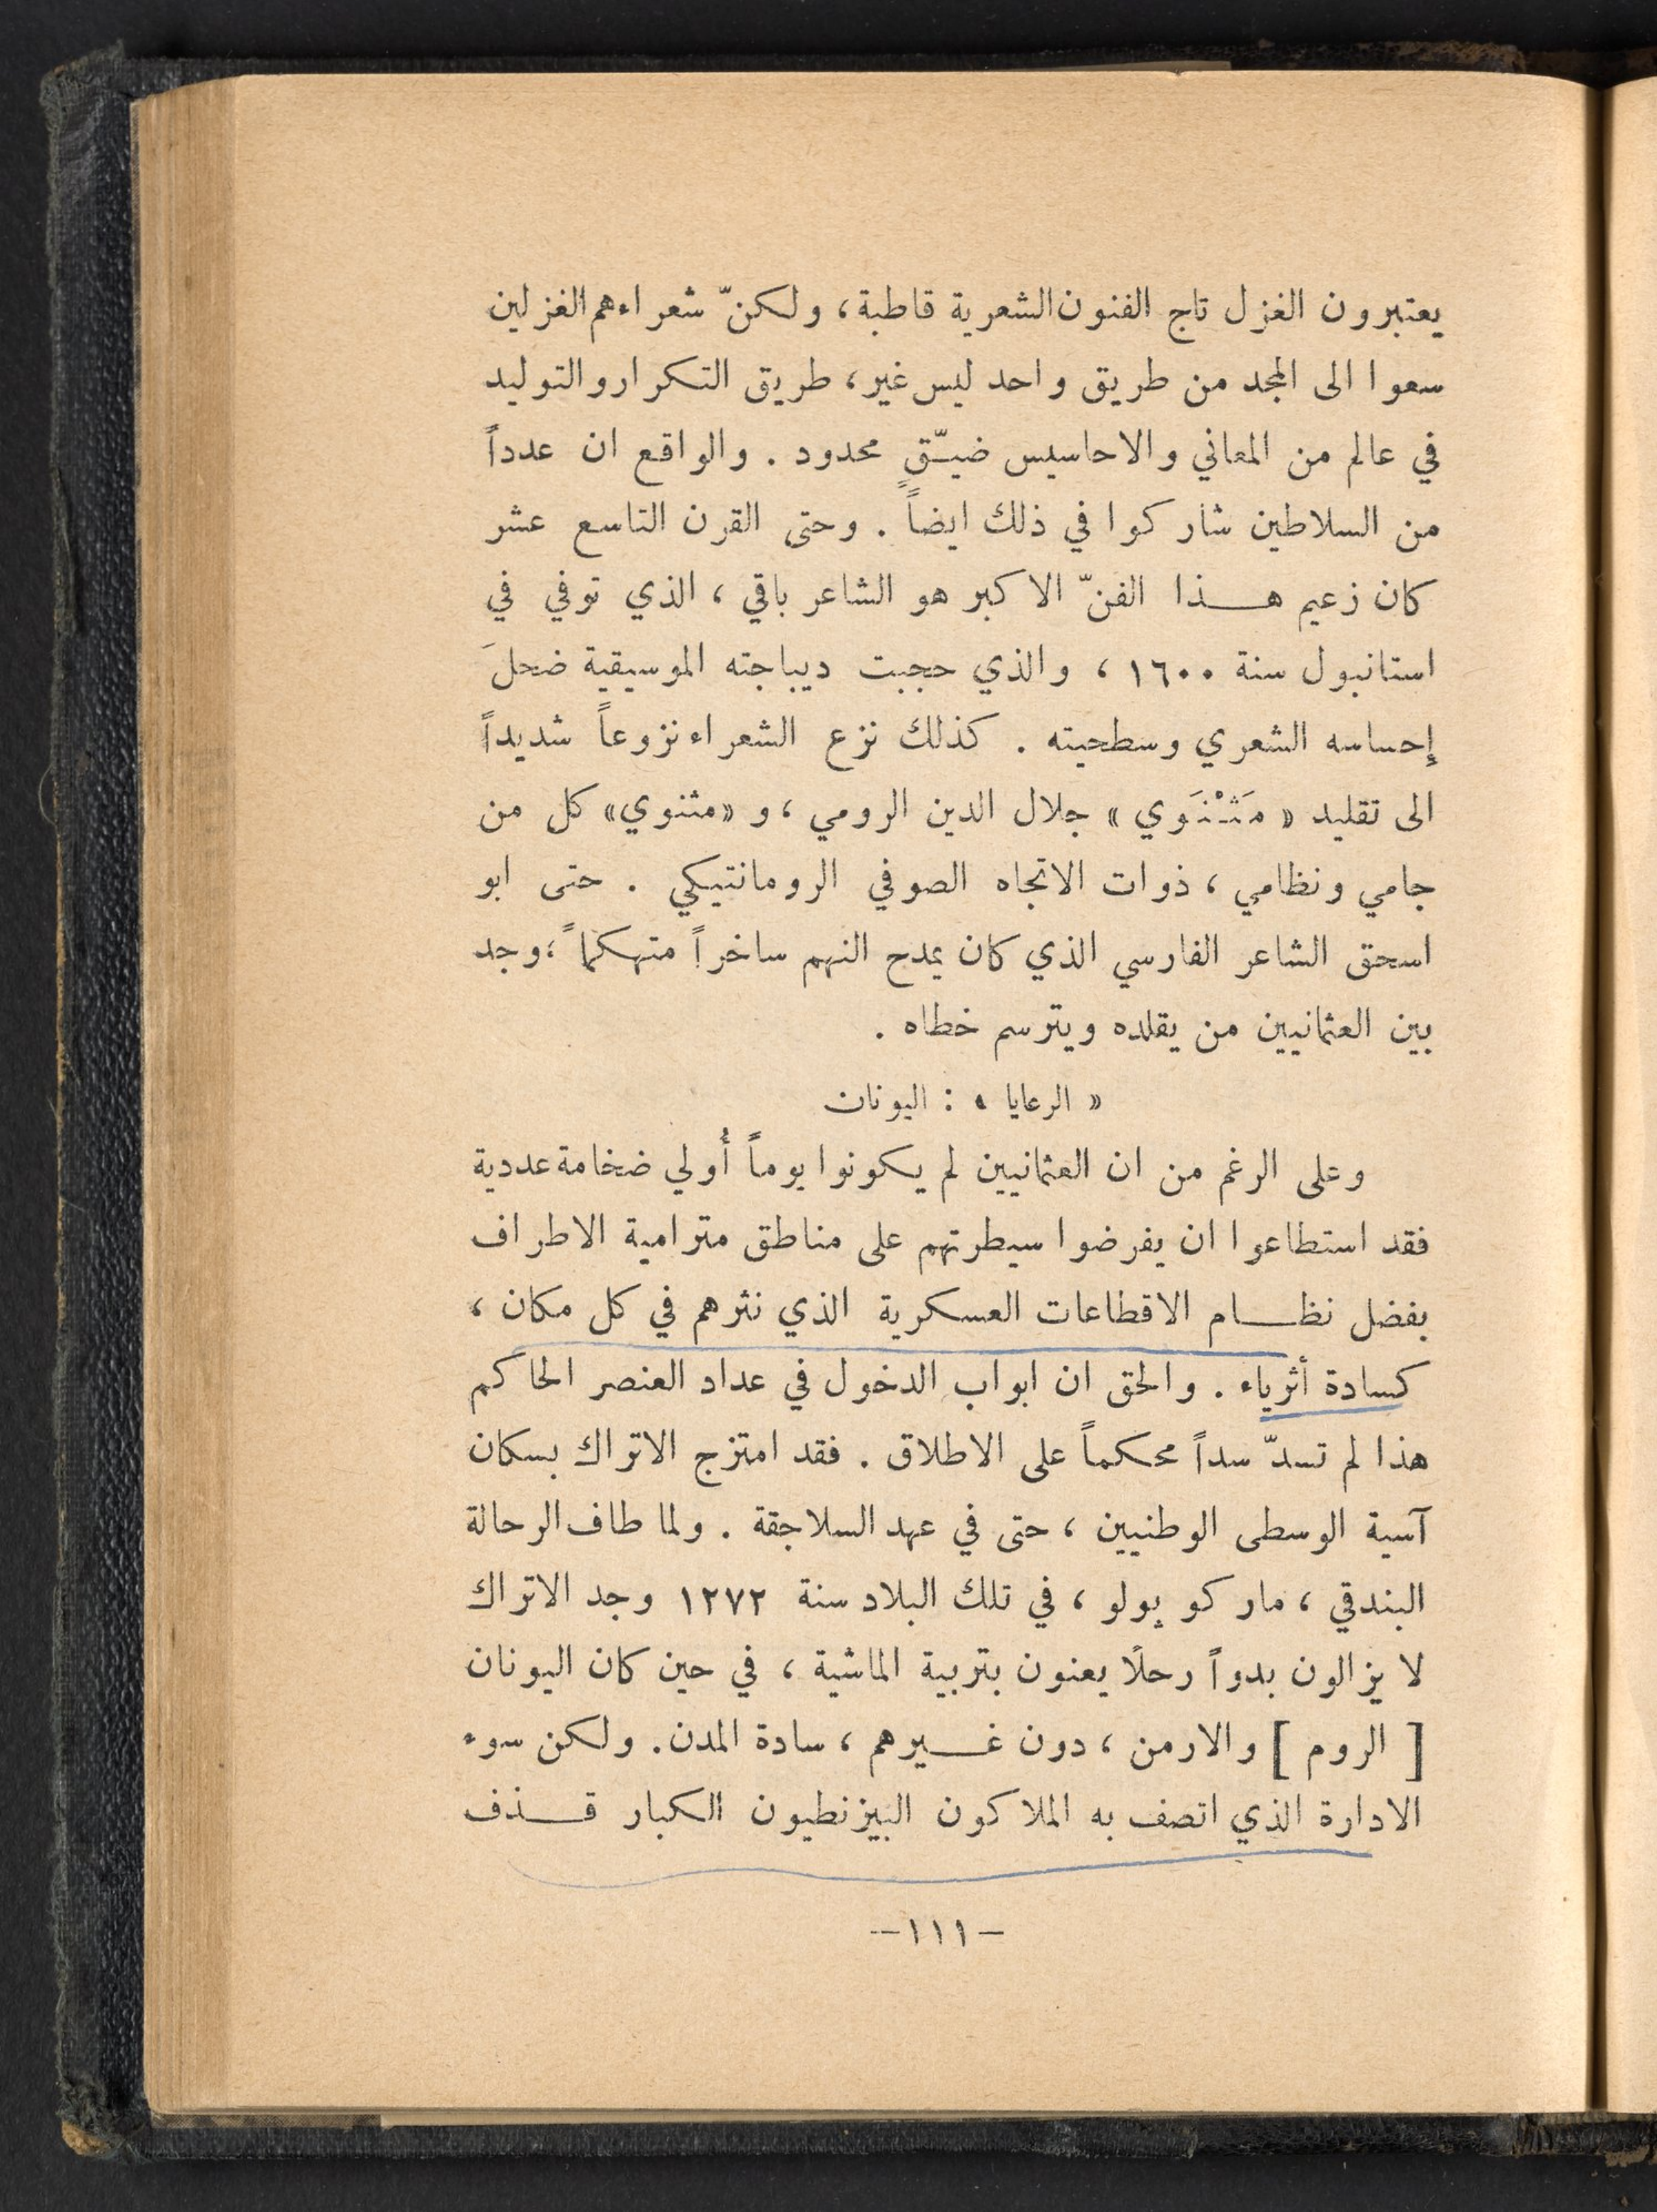 يعتبرون الغزل تاج الفنون الشعرية قاطبة، ولكنّ شعراءهم الغزلين
سعوا الى المجد من طريق واحد ليس غير، طريق التكرار والتوليد
في عالم من المعاني والاحاسيس ضيّقٍ محدود . والواقع ان عدداً
من السلاطين شاركوا في ذلك ايضاً . وحتى القرن التاسع عشر
كان زعيم هـذا الفنّ الاكبر هو الشاعر باقي ، الذي توفي في
استانبول سنة ١٦٠٠ ، والذي حجبت ديباجته الموسيقية ضحلَ
إحساسه الشعري وسطحيته . كذلك نزع الشعراء نزوعاً شديداً
الى تقليد « مَثْنَوي » جلال الدين الرومي ، و «مثنوي» كل من
جامي ونظامي ، ذوات الاتجاه الصوفي الرومانتيكي . حتى ابو
اسحق الشاعر الفارسي الذي كان يمدح النهم ساخراً متهكماً ، وجد
بين العثمانيين من يقلده ويترسم خطاه .
« الرعايا » : اليونان
وعلى الرغم من ان العثمانيين لم يكونوا يوماً أُولي ضخامة عددية
فقد استطاعوا ان يفرضوا سيطرتهم على مناطق مترامية الاطراف
بفضل نظـام الاقطاعات العسكرية الذي نثرهم في كل مكان ،
كسادة أثرياء . والحق ان ابواب الدخول في عداد العنصر الحاكم
هذا لم تسدّ سداً محكماً على الاطلاق . فقد امتزج الاتراك بسكان
آسية الوسطى الوطنيين ، حتى في عهد السلاجقة . ولما طاف الرحالة
البندقي ، ماركو پولو ، في تلك البلاد سنة ١٢٧٢ وجد الاتراك
لا يزالون بدواً رحلًا يعنون بتربية الماشية ، في حين كان اليونان
[ الروم ] والارمن ، دون غـيرهم ، سادة المدن. ولكن سوء
الادارة الذي اتصف به الملاكون البيزنطيون الكبار قـذف
—١١١—